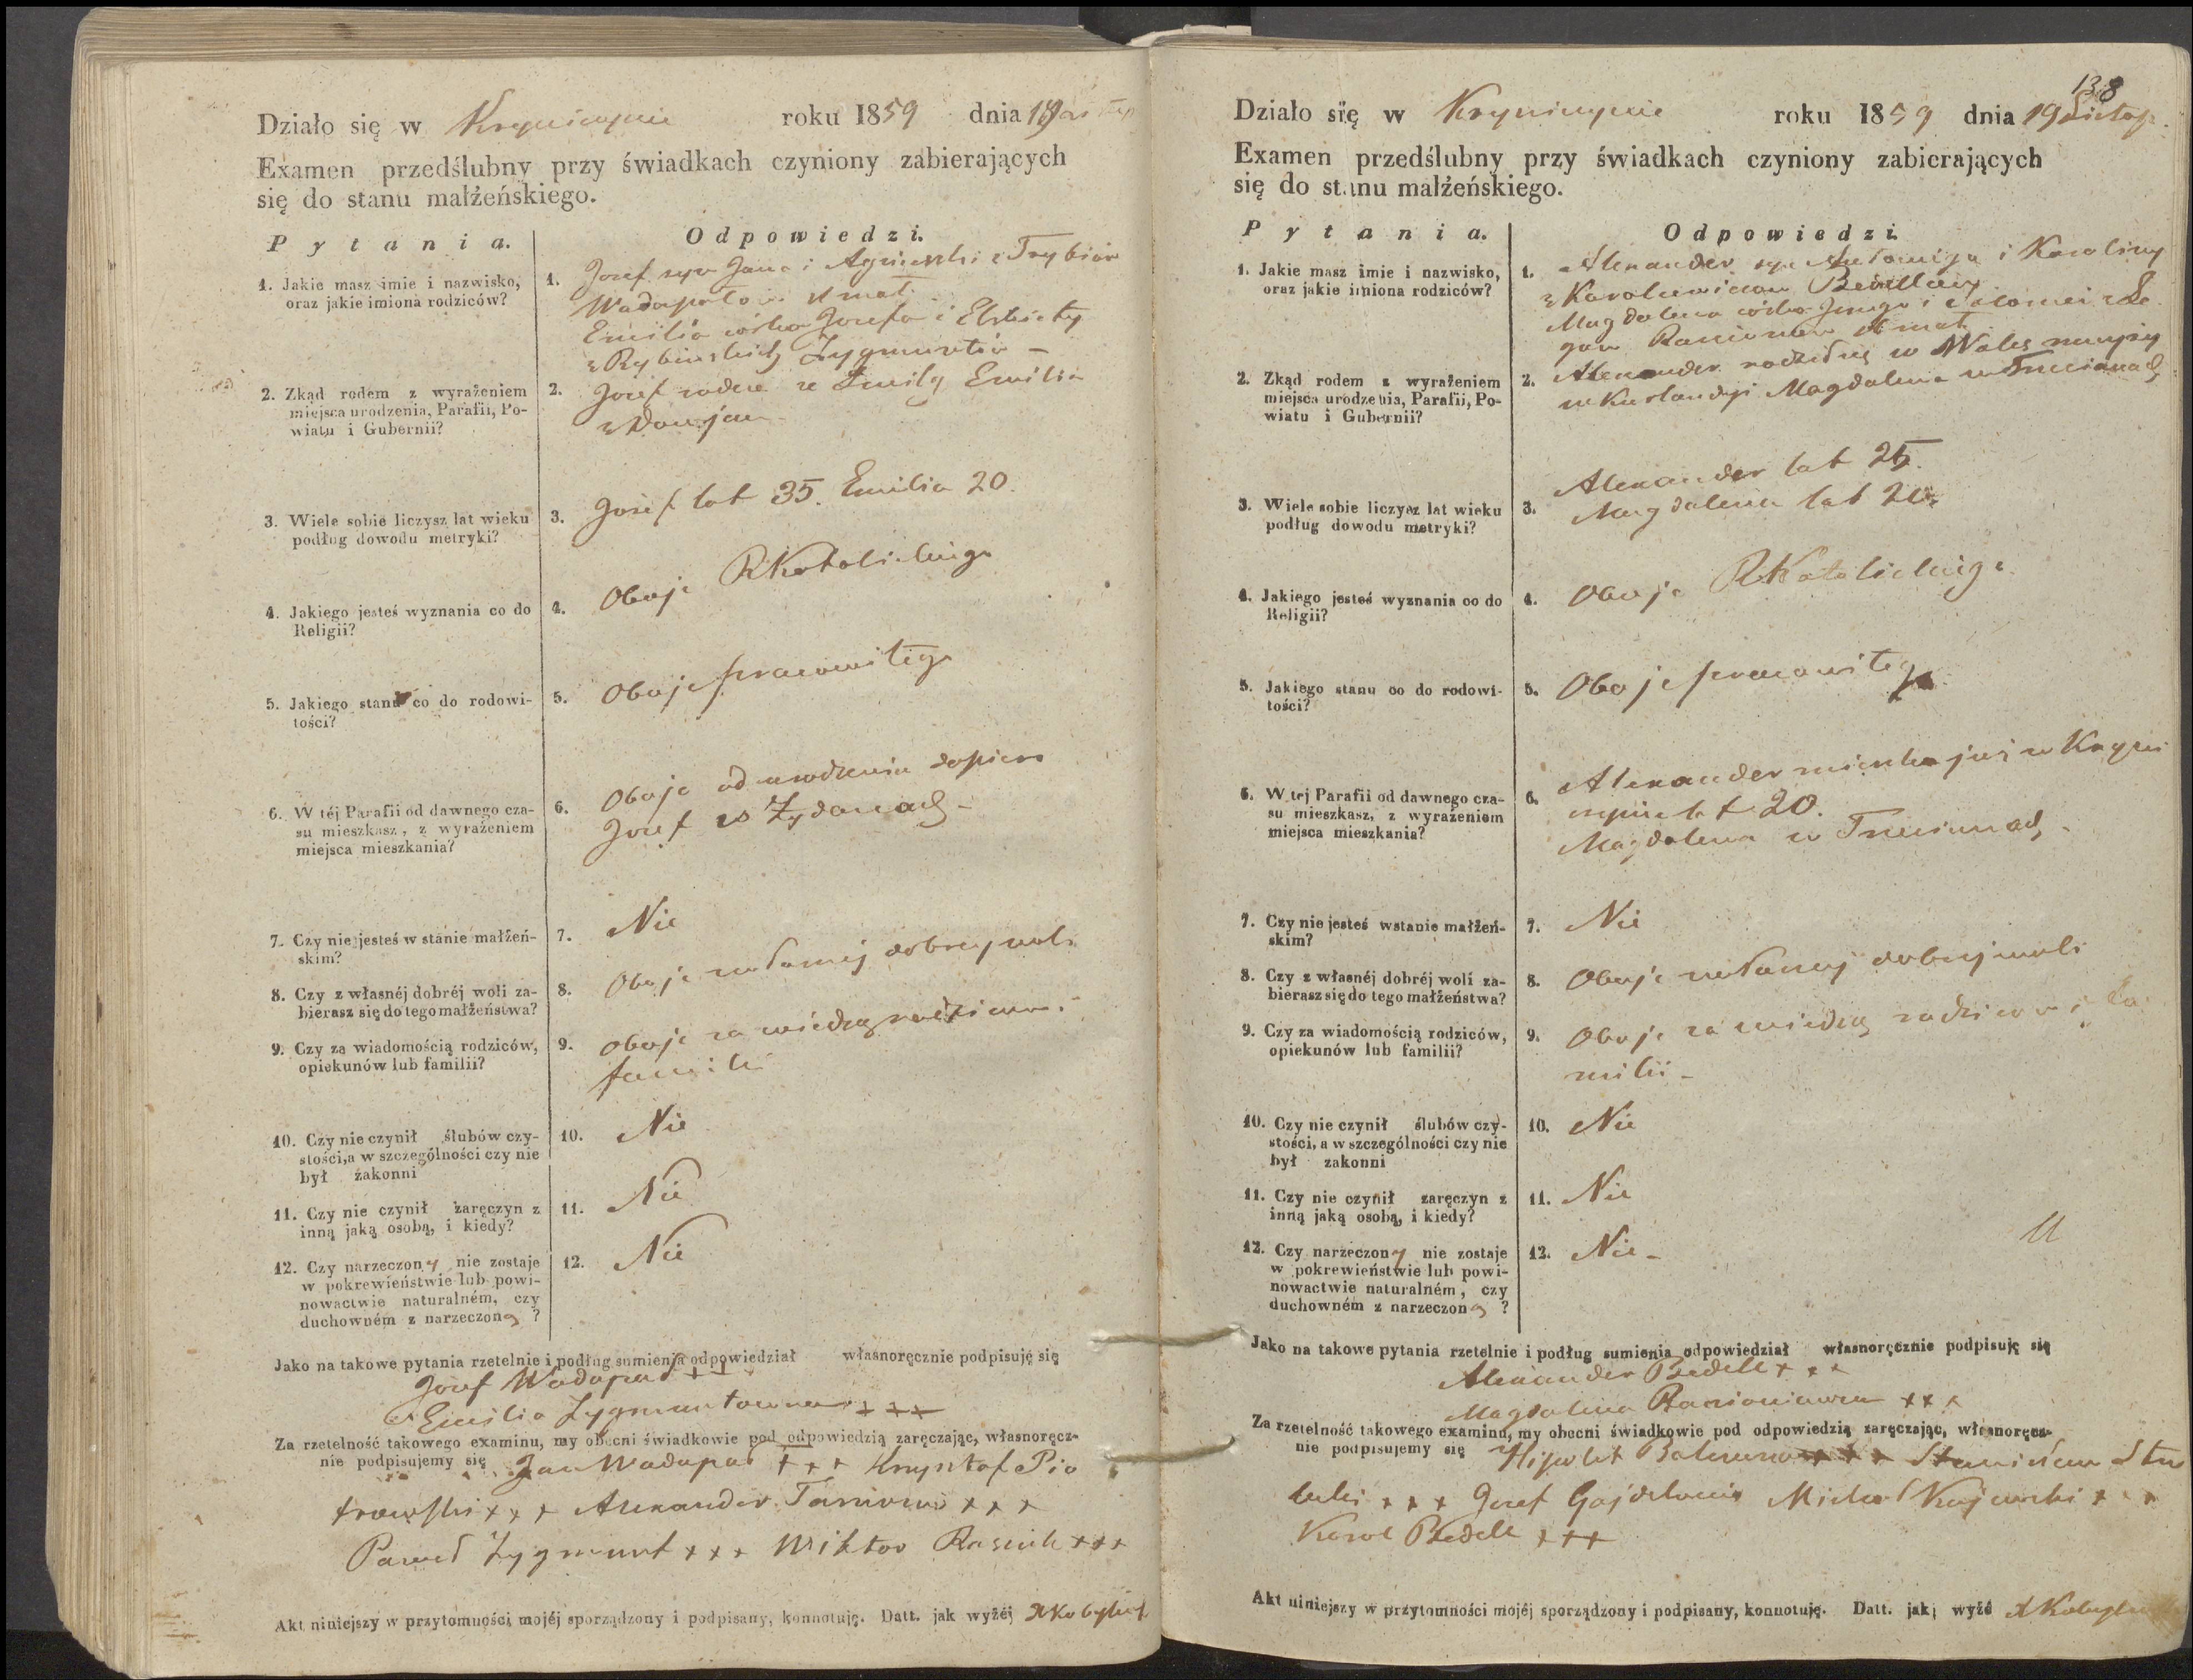 Działo się w Krynicznie roku 1859 dnia 19
Examen przedślubny przy świadkach czyniony zabierających
się do stanu małżeńskiego.
Pytania. Odpowiedzi.
1. Jakie masz imie i nazwisko,
oraz jakie imiona rodziców?
1. Jozef syn Jana i Agnieszki z Trybiów
Wadapałów
Emilia córka Jozefa i Elżbiety
z Rybinskich Zygmuntów –
2. Zkąd rodem z wyrażeniem
miejsca urodzenia, Parafii, Po-
wiatu i Gubernii?
2. Jozef rodem ze Emilia
3. Wiele sobie liczysz lat wieku
podług dowodu metryki?
3. Jozef lat 35. Emilia 20.
4. Jakiego jesteś wyznania co do
Religii?
4. Oboje RKatolickiego
5. Jakiego stanu co do rodowi-
tości?
5. Oboje pracowitego
6. W téj Parafii od dawnego cza-
su mieszkasz, z wyrażeniem
miejsca mieszkania?
6. Oboje od urodzenia dopiero
Jozef w Żydanach –
7. Czy nie jesteś w stanie małżeń-
skim?
7. Nie
8. Czy z własnéj dobréj woli za-
bierasz się do tego małżeństwa?
8. Oboje własnej dobrej woli
9. Czy za wiadomością rodziców,
opiekunów lub familii?
9. Oboje za wiedzą rodziców i
familii
10. Czy nie czynił ślubów czy-
stości, a w szczególności czy nie
był zakonni
10. Nie
11. Czy nie czynił zaręczyn z
inną jaką osobą, i kiedy?
11. Nie
12. Czy narzeczony nie zostaje
w pokrewieństwie lub powi-
nowactwie naturalném, czy
duchowném z narzeczoną ?
12. Nie
Jako na takowe pytania rzetelnie i podług sumienia odpowiedział własnoręcznie podpisuję się
Jozef Wadapał + +
Emilia Zygmuntowna + + +
Za rzetelność takowego examinu, my obecni świadkowie pod odpowiedzią zaręczając, własnoręcz-
nie podpisujemy się Jan Wadapał + + + Krysztof Pio
trowski + + + Alexander + + +
Paweł Zygmunt + + + Wiktor Rasiuk + + +
Akt niniejszy w przytomności mojéj sporządzony i podpisany, konnotuję. Datt. jak wyżéj
138
Działo się w Krynicznie roku 1859 dnia 19 Listop.
Examen przedślubny przy świadkach czyniony zabierających
się do stanu małżeńskiego.
Pytania. Odpowiedzi.
1. Jakie masz imie i nazwisko,
oraz jakie imiona rodziców?
1. Alexander syn Antoniego i Karoliny
z Karolewiczow
Magdalena córka i Salomei
2. Zkąd rodem z wyrażeniem
miejsca urodzenia, Parafii, Po-
wiatu i Gubernii?
2. Alexander rodził się w
w Kurlandyi Magdalena w Trucianach
3. Wiele sobie liczysz lat wieku
podług dowodu metryki?
3. Alexander lat 25.
Magdalena lat 20.
4. Jakiego jesteś wyznania co do
Religii?
4. Oboje RKatolickiego
5. Jakiego stanu co do rodowi-
tości?
5. Oboje pracowitego
6. W tej Parafii od dawnego cza-
su mieszkasz, z wyrażeniem
miejsca mieszkania?
6. Alexander mieszka już w
lat 20.
Magdalena w Trucianach –
7. Czy nie jesteś wstanie małżeń-
skim?
7. Nie
8. Czy z własnéj dobréj woli za-
bierasz się do tego małżeństwa?
8. Oboje własnej dobrej woli
9. Czy za wiadomością rodziców,
opiekunów lub familii?
9. Oboje za wiedzą rodziców i fa
milii –
10. Czy nie czynił ślubów czy-
stości, a w szczególności czy nie
był zakonni
10. Nie
11. Czy nie czynił zaręczyn z
inną jaką osobą, i kiedy?
11. Nie
12. Czy narzeczony nie zostaje
w pokrewieństwie lub powi-
nowactwie naturalném, czy
duchowném z narzeczoną ?
12. Nie –
Jako na takowe pytania rzetelnie i podług sumienia odpowiedział własnoręcznie podpisuję się
Alexander Bedell + + +
Magdalena + + +
Za rzetelność takowego examinu, my obecni świadkowie pod odpowiedzią zaręczając, własnoręcz-
nie podpisujemy się Hipolit + + +
+ + + Jozef Michał + + +
Karol Bedell + + +
Akt niniejszy w przytomności mojéj sporządzony i podpisany, konnotuję. Datt. jak wyżé